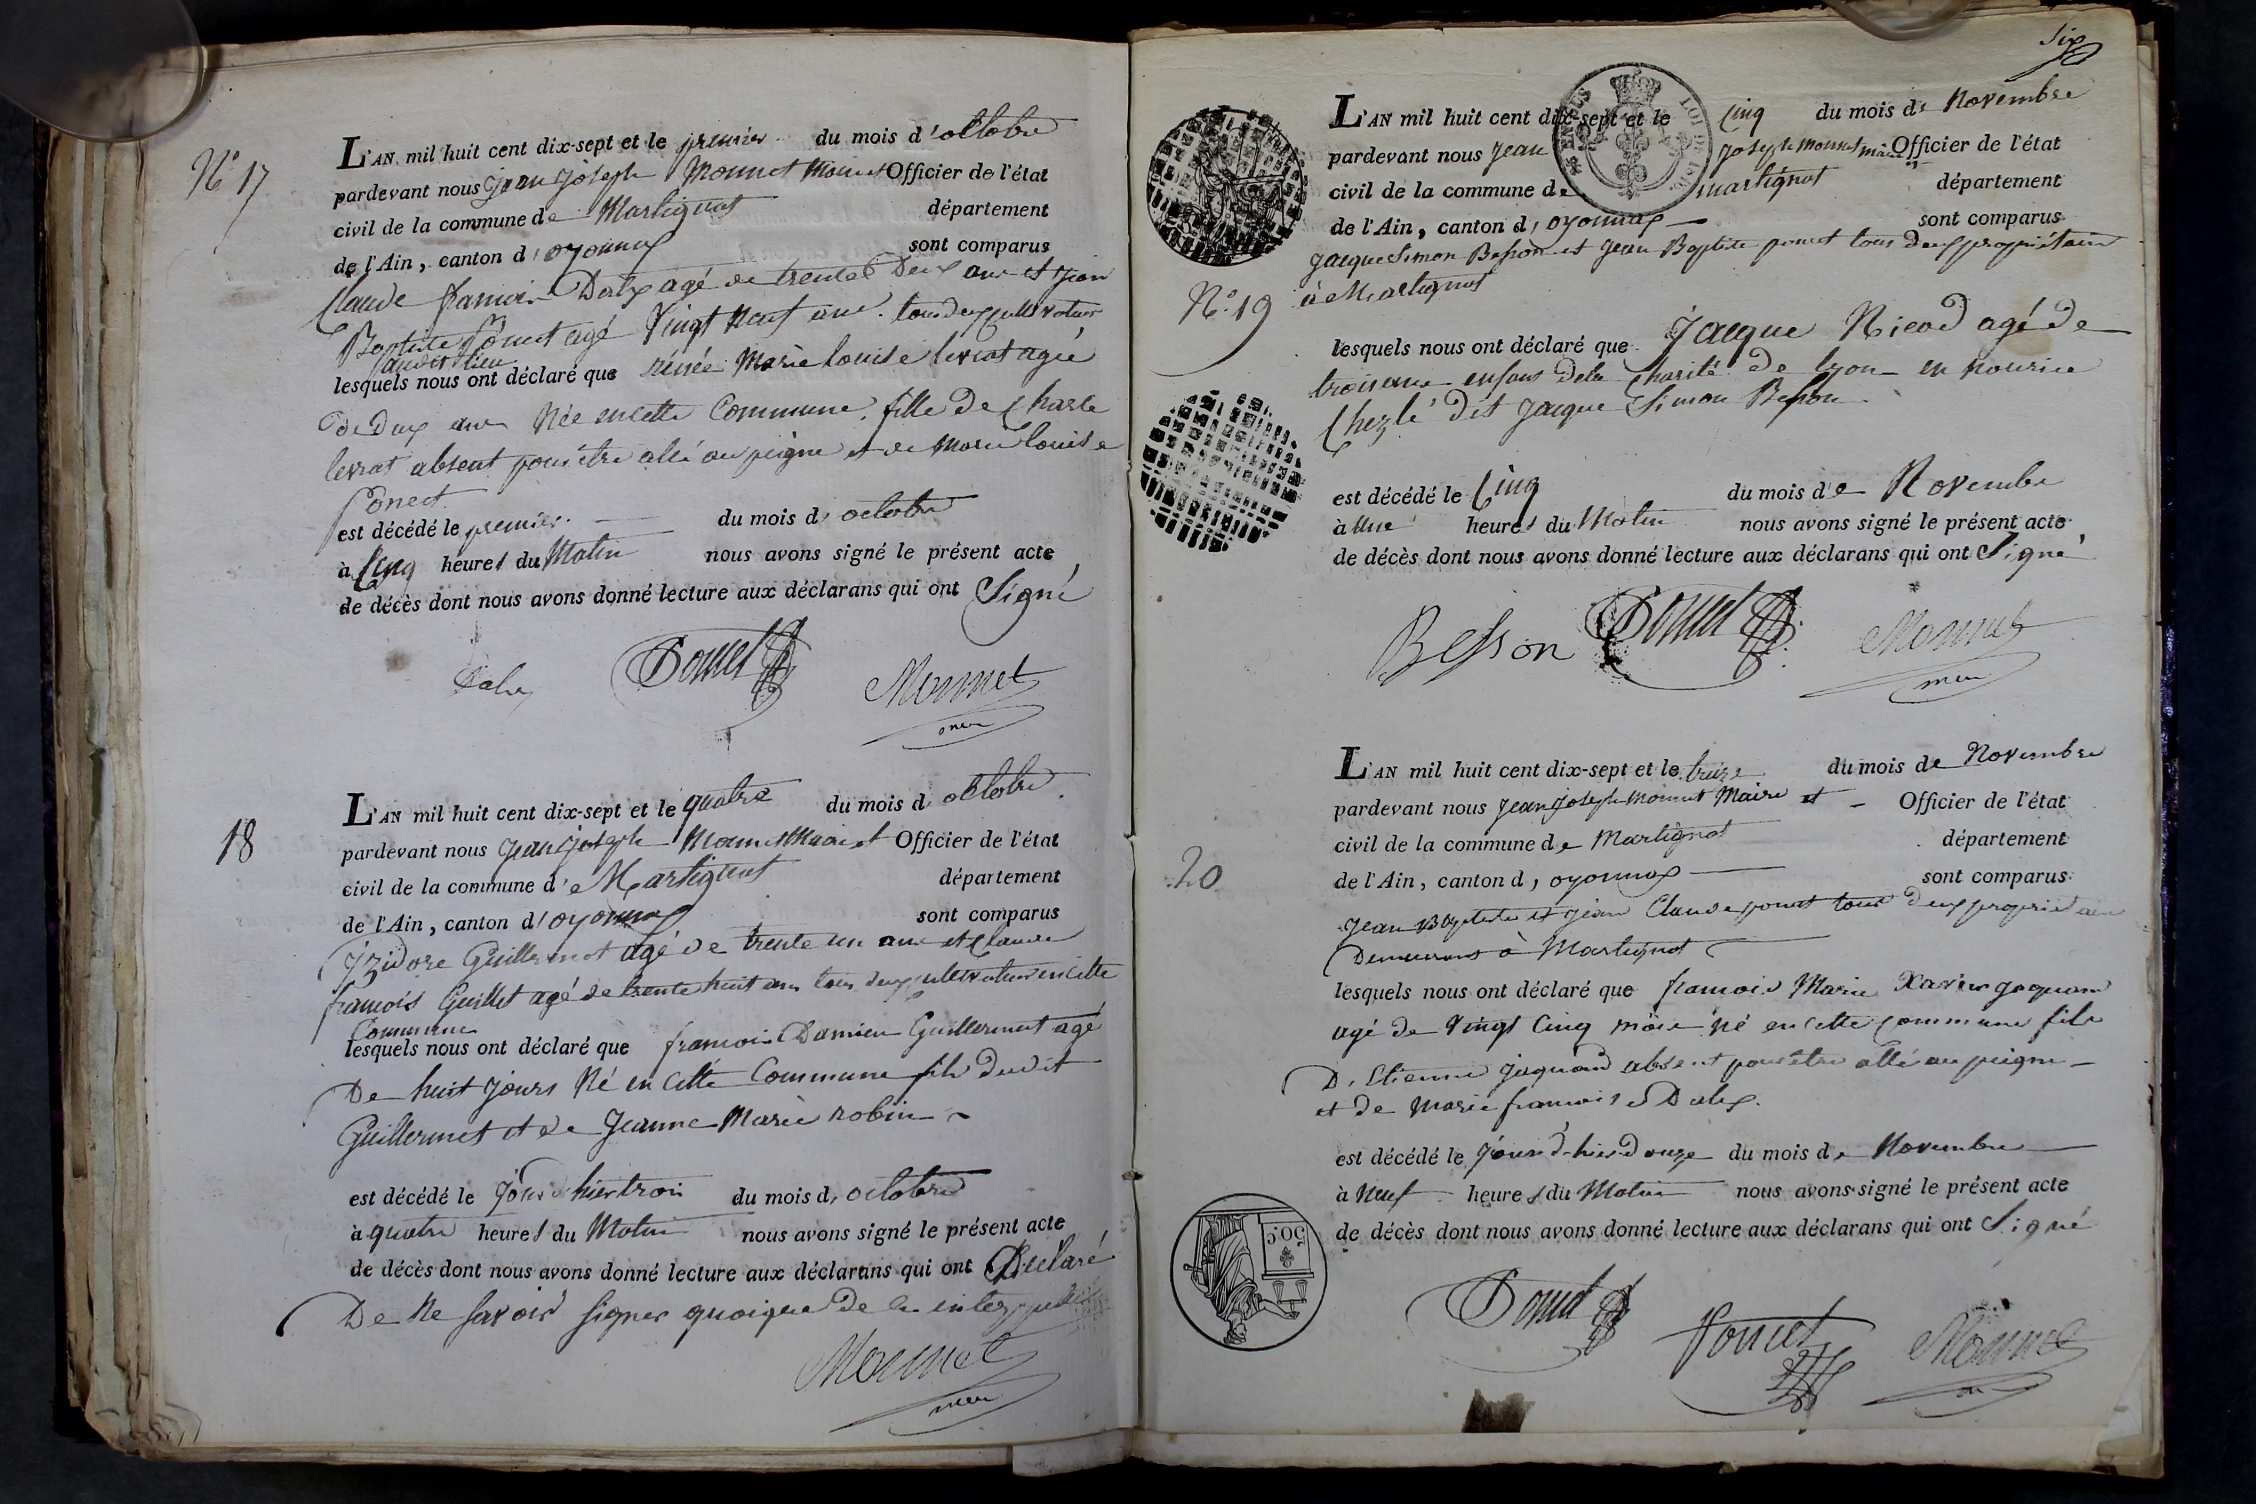 N° 17
L'AN mil huit cent dix-sept et le premier du mois d'octobre
pardevant nous jean joseph Monnet Officier de l'état
civil de la commune de Martignat département
de l'Ain, canton d'oyonnax sont comparus
Claude françois Dalex agé de trente Deux ans et jean
Baptiste Ponet agé Vingt neuf ans tous deux cultivateurs
audit lieu
lesquels nous ont déclaré que Marie Louise levrat agée
De Deux ans Née en cette Commune fille de Charle
levrat absent pour être allé au peigne et de Marie louise
Ponet
est décédé le premier du mois d'octobre
à Cinq heures du Matin nous avons signé le présent acte
de décès dont nous avons donné lecture aux déclarans qui ont Signé
Dalex Ponet Monnet
18
L'AN mil huit cent dix-sept et le quatre du mois d octobre
pardevant nous jean joseph Monnet Officier de l'état
civil de la commune de Martignat département
de l'Ain, canton d'oyonnax sont comparus
izidore Guillermet agé de trente un ans et Claude
françois Guillet agé de trente huit ans tous deux cultivateurs en cette
Commune
lesquels nous ont déclaré que francois Damien Guillermet agé
De huit jours Né en Cette Commune fils dudit
Guillermet et de Jeanne Marie robin
est décédé le jour d'hier trois du mois d'octobre
à quatre heures du Matin nous avons signé le présent acte
de décès dont nous avons donné lecture aux déclarans qui ont Déclaré
De Ne savoir signer quoique de ce
Monnet
six
L'AN mil huit cent dix-sept et le Cinq du mois de Novembre
pardevant nous jean joseph monnet maire Officier de l'état
civil de la commune de martignat département
de l'Ain, canton d'oyonnax sont comparus
jacque Simon Besson et jean Baptiste ponet tous deux propriétaire
N° 19
à Martignat
lesquels nous ont déclaré que Jacque Nicod agé de
trois ans enfans de la Charité de lyon en nourice
Chez le dit jacque Simon Besson
est décédé le Cinq du mois de Novembre
à une heures du Matin nous avons signé le présent acte
de décès dont nous avons donné lecture aux déclarans qui ont Signé
Besson Ponet Monnet
L'AN mil huit cent dix-sept et le treize du mois de Novembre
pardevant nous jean joseph monnet Maire et Officier de l'état
civil de la commune de Martignat département
20
de l'Ain, canton d'oyonnax sont comparus
jean Baptiste et jean Claude ponet tous deux propriétaire
Demeurans à Martignat
lesquels nous ont déclaré que francois Marie Xavier jaquand
agé de Vingt Cinq mois né en cette commune fils
D'Etienne jaquand absent pour être allé au peigne
et de Marie francoise Dalex.
est décédé le jour d'hier Douze du mois de Novembre
à Neuf heures du Matin nous avons signé le présent acte
50 C
de décès dont nous avons donné lecture aux déclarans qui ont Signé
Ponet Poncet Monnet